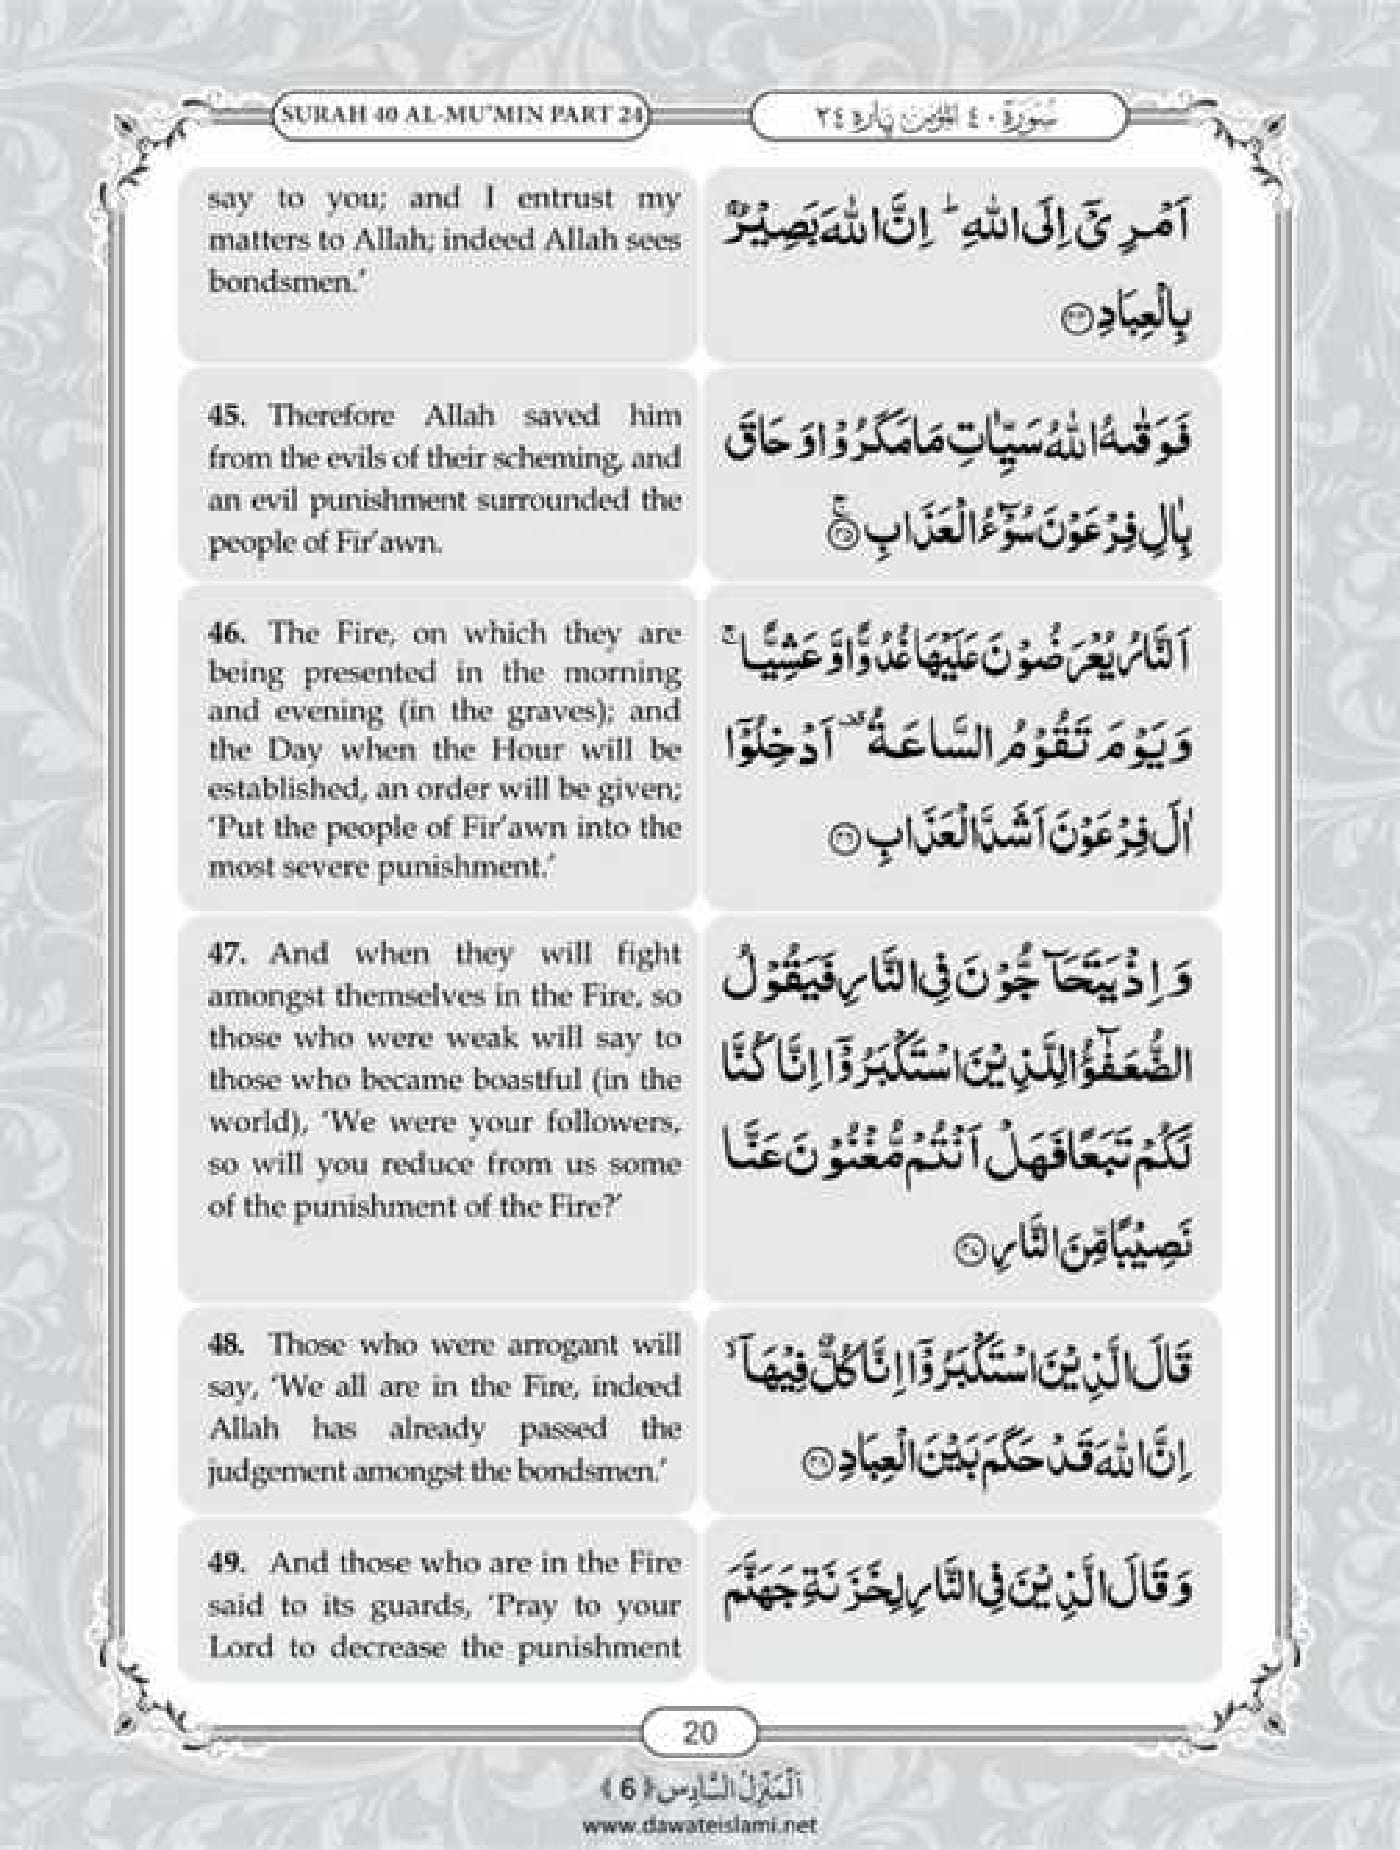 SURAH 40 AL-MU'MIN PART 24
سُوْرَةُ ٤٠ الْمُؤْمِن پَارَه ٢٤
say to you; and I entrust my
matters to Allah; indeed Allah sees
bondsmen.’
اَمْرِیْۤ اِلَى اللّٰهِ ؕ اِنَّ اللّٰهَ بَصِیْرٌۢ
بِالْعِبَادِ ﴿۴۴﴾
45. Therefore Allah saved him
from the evils of their scheming, and
an evil punishment surrounded the
people of Fir’awn.
فَوَقٰىهُ اللّٰهُ سَیِّاٰتِ مَا مَكَرُوْا وَ حَاقَ
بِاٰلِ فِرْعَوْنَ سُوْٓءُ الْعَذَابِ ﴿ۚ۴۵﴾
46. The Fire, on which they are
being presented in the morning
and evening (in the graves); and
the Day when the Hour will be
established, an order will be given;
‘Put the people of Fir’awn into the
most severe punishment.’
اَلنَّارُ یُعْرَضُوْنَ عَلَیْهَا غُدُوًّا وَّ عَشِیًّا ۚ
وَ یَوْمَ تَقُوْمُ السَّاعَةُ ۟ اَدْخِلُوْۤا
اٰلَ فِرْعَوْنَ اَشَدَّ الْعَذَابِ ﴿۴۶﴾
47. And when they will fight
amongst themselves in the Fire, so
those who were weak will say to
those who became boastful (in the
world), ‘We were your followers,
so will you reduce from us some
of the punishment of the Fire?’
وَ اِذْ یَتَحَآجُّوْنَ فِی النَّارِ فَیَقُوْلُ
الضُّعَفٰٓؤُا لِلَّذِیْنَ اسْتَكْبَرُوْۤا اِنَّا كُنَّا
لَكُمْ تَبَعًا فَهَلْ اَنْتُمْ مُّغْنُوْنَ عَنَّا
نَصِیْبًا مِّنَ النَّارِ ﴿۴۷﴾
48. Those who were arrogant will
say, ‘We all are in the Fire, indeed
Allah has already passed the
judgement amongst the bondsmen.’
قَالَ الَّذِیْنَ اسْتَكْبَرُوْۤا اِنَّا كُلٌّ فِیْهَاۤ ۙ
اِنَّ اللّٰهَ قَدْ حَكَمَ بَیْنَ الْعِبَادِ ﴿۴۸﴾
49. And those who are in the Fire
said to its guards, ‘Pray to your
Lord to decrease the punishment
وَ قَالَ الَّذِیْنَ فِی النَّارِ لِخَزَنَةِ جَهَنَّمَ
20
اَلْمَنْزِلُ السَّادِس ﴿6﴾
www.dawateislami.net